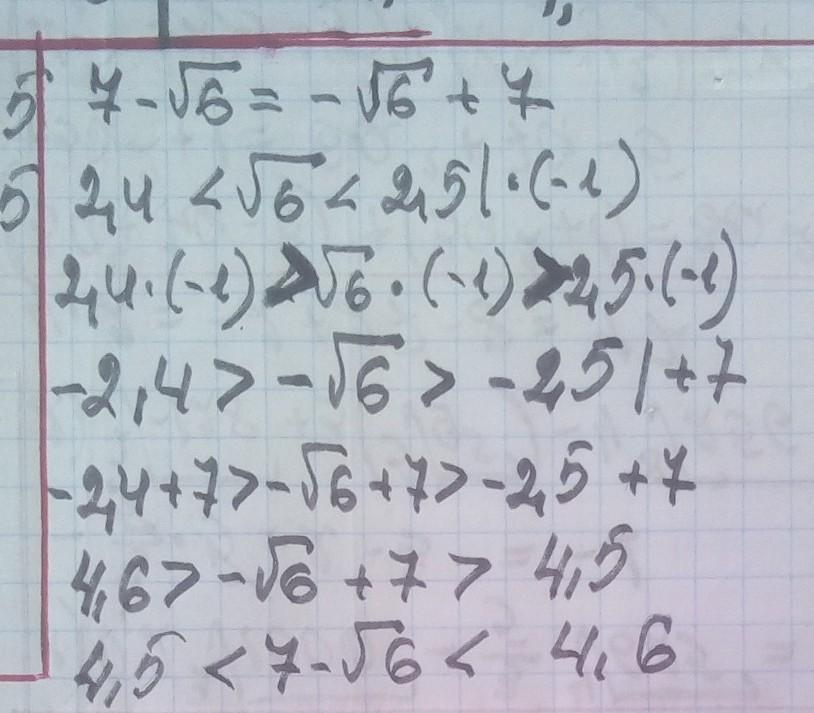 5 7-√6 = -√6 + 7
5 2,4 < √6 < 2,5 | · (-1)
2,4 · (-1) > √6 · (-1) > 2,5 · (-1)
-2,4 > -√6 > -2,5 | + 7
-2,4 + 7 > -√6 + 7 > -2,5 + 7
4,6 > -√6 + 7 > 4,5
4,5 < 7-√6 < 4,6